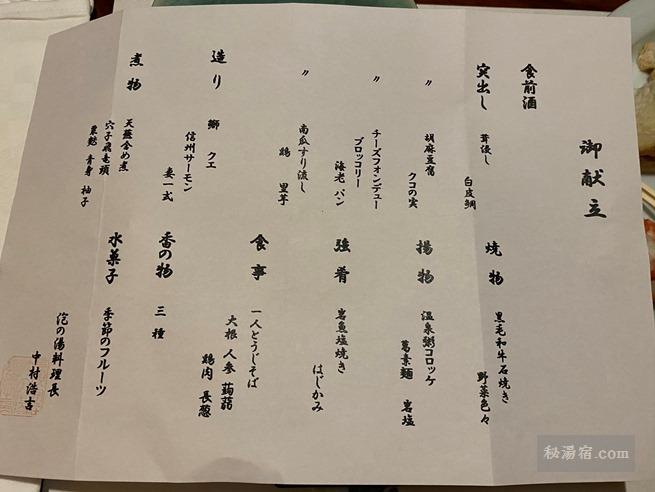 御献立
食前酒
突出し
茸浸し
白皮鯛
〃
胡麻豆腐
クコの実
〃
チーズフォンデュー
ブロッコリー
海老 パン
〃
南瓜すり流し
鶏 里芋
造り
クエ
信州サーモン
妻一式
煮物
天蕪含め煮
穴子飛竜頭
粟麩 青身 柚子
焼物
黒毛和牛石焼き
野菜色々
揚物
温泉粥コロッケ
葛素麺 岩塩
強肴
岩魚塩焼き
はじかみ
食事
一人とうじそば
大根 人参 蒟蒻
鶏肉 長葱
香の物
三種
水菓子
季節のフルーツ
泡の湯料理長
中村浩吉
秘湯宿.com